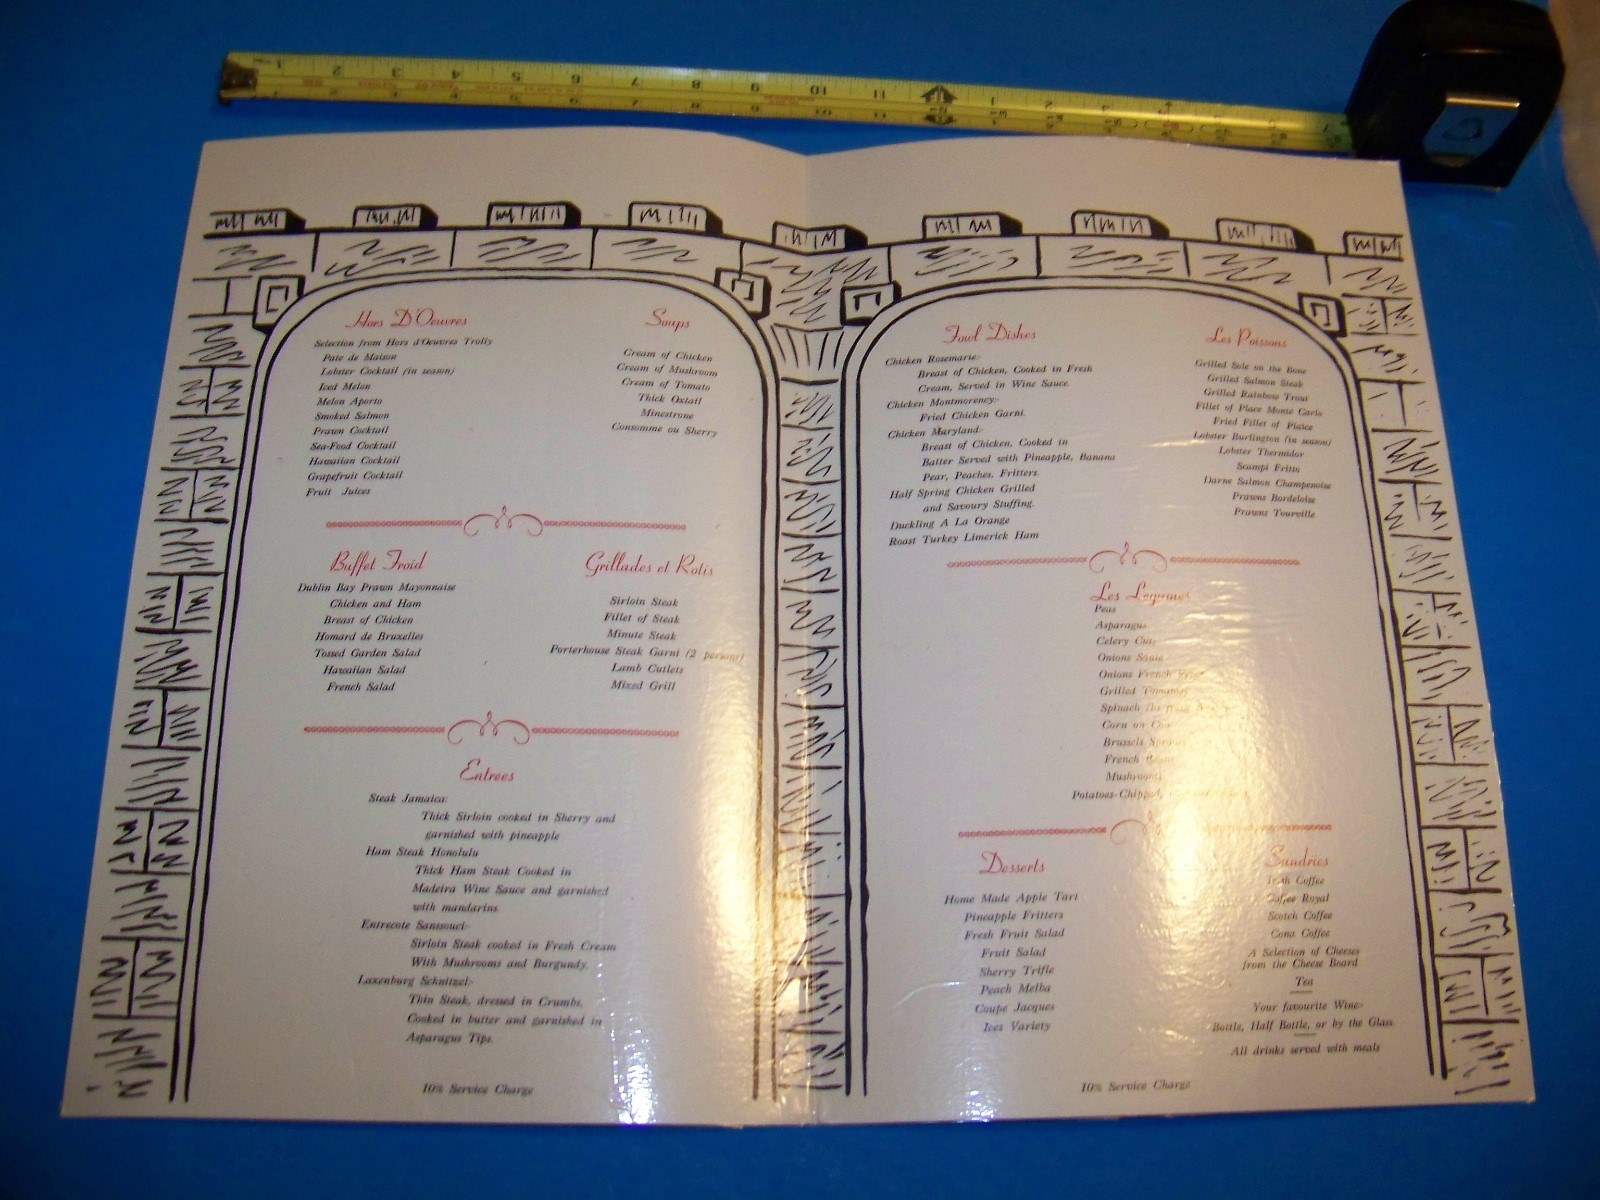 1 2 3 4 5 6 7 8 9 10 11 1 2
Hors D'Oeuvres
Selection from Hors d'Oeuvres Trolly
Pate de Maison
Lobster Cocktail (in season)
Iced Melon
Melon Aporto
Smoked Salmon
Prawn Cocktail
Sea-Food Cocktail
Hawaiian Cocktail
Grapefruit Cocktail
Fruit Juices
Soups
Cream of Chicken
Cream of Mushroom
Cream of Tomato
Thick Oxtail
Minestrone
Consomme ou Sherry
Buffet Froid
Dublin Bay Prawn Mayonnaise
Chicken and Ham
Breast of Chicken
Homard de Bruxelles
Tossed Garden Salad
Hawaiian Salad
French Salad
Grillades et Rotis
Sirloin Steak
Fillet of Steak
Minute Steak
Porterhouse Steak Garni (2 persons)
Lamb Cutlets
Mixed Grill
Entrees
Steak Jamaica:
Thick Sirloin cooked in Sherry and
garnished with pineapple
Ham Steak Honolulu
Thick Ham Steak Cooked in
Madeira Wine Sauce and garnished
with mandarins.
Entrecote Sanssouci:-
Sirloin Steak cooked in Fresh Cream
With Mushrooms and Burgundy.
Laxenburg Schnitzel:-
Thin Steak, dressed in Crumbs,
Cooked in butter and garnished in
Asparagus Tips.
10% Service Charge
Fowl Dishes
Chicken Rosemarie:-
Breast of Chicken, Cooked in Fresh
Cream, Served in Wine Sauce.
Chicken Montmorency:-
Fried Chicken Garni.
Chicken Maryland:-
Breast of Chicken, Cooked in
Batter Served with Pineapple, Banana
Pear, Peaches, Fritters.
Half Spring Chicken Grilled
and Savoury Stuffing.
Duckling A La Orange
Roast Turkey Limerick Ham
Les Poissons
Grilled Sole on the Bone
Grilled Salmon Steak
Grilled Rainbow Trout
Fillet of Place Monte Carlo
Fried Fillet of Plaice
Lobster Burlington (in season)
Lobster Thermidor
Scampi Fritts
Darne Salmon Champenoise
Prawns Bordeloise
Prawns Tourville
Les Legumes
Peas
Asparagus
Celery
Onions Saute
Onions French
Grilled Tomatoes
Spinach
Corn on Cob
Brussels Sprouts
French Beans
Mushrooms
Potatoes-Chipped,
Desserts
Home Made Apple Tart
Pineapple Fritters
Fresh Fruit Salad
Fruit Salad
Sherry Trifle
Peach Melba
Coupe Jacques
Ices Variety
Sundries
Irish Coffee
Coffee Royal
Scotch Coffee
Cona Coffee
A Selection of Cheeses
from the Cheese Board
Tea
Your favourite Wine:-
Bottle, Half Bottle, or by the Glass
All drinks served with meals
10% Service Charge